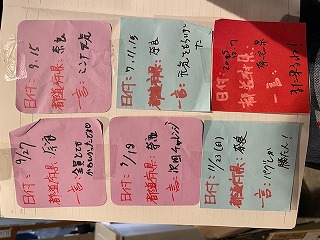 日付: 9/27
一言: 全員とても
かわいかったです
日付: 9.15
都道府県: 奈良
一言:
日付: 9/19
都道府県: 奈良
一言: 次回チャレンジ
日付: 11.13
都道府県: 奈良
一言: 元気をもらいまし
た
日付: 11/23(日)
都道府県: 奈良
一言: パグしか
勝たん!
日付: 2025
都道府県:
一言: また来ます!